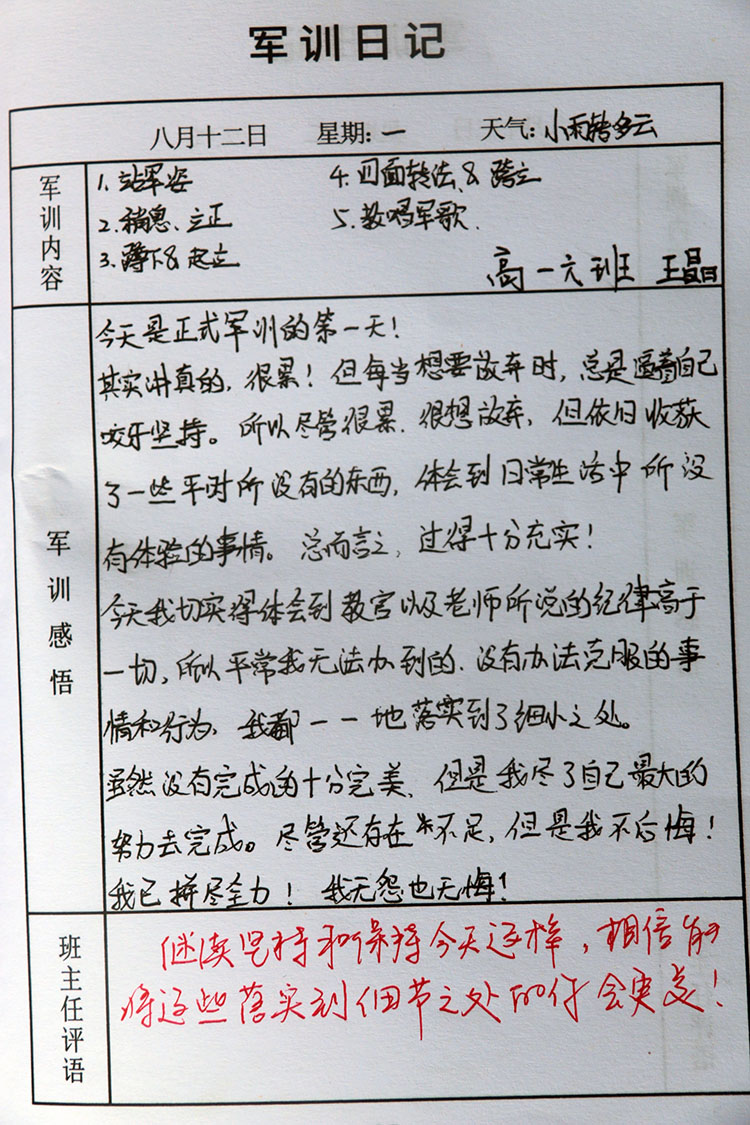 军训日记
八月十二日 星期:一 天气:小雨转多云
军训内容
1.站军姿 4.四面转法、& 跨立
2.稍息、立正 5.教唱军歌.
3.蹲下& 起立
高一六班 王晶
军训感悟
今天是正式军训的第一天!
其实讲真的,很累!但每当想要放弃时,总是逼着自己
咬牙坚持。所以尽管很累.很想放弃,但依旧收获
了一些平时所没有的东西,体会到日常生活中所没
有体验的事情。总而言之,过得十分充实!
今天我切实得体会到教官以及老师所说的纪律高于
一切,所以平常我无法办到的.没有办法克服的事
情和行为,我都一一地落实到了细小之处。
虽然没有完成的十分完美,但是我尽了自己最大的
努力去完成。尽管还存在不足,但是我不后悔!
我已拼尽全力!我无怨也无悔!
班主任评语
继续坚持和保持今天这样,相信
将这些落实到细节之处的你会更美!